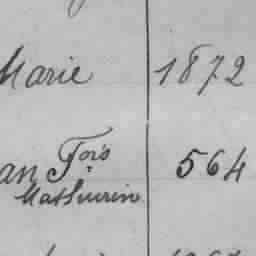 Marie 1872
an Fois 564
Mathurin